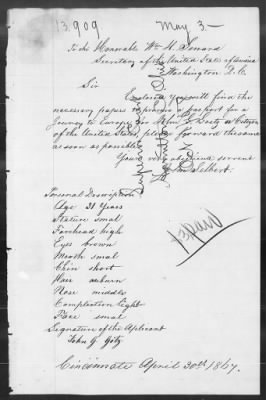 13.909
May 3.
To the Honorable Wm H. Seward
Secretary of the United States of America
Washington D.C.
Sir
Enclosed you will find the
necessary papers to procure a passport for a
Journey to Europe for John G. Götz a Citizen
of the United States, please forward the same
as soon as possible.
Your very obedient servent
Personal Description
Age 31 Years
Stature smal
Forehead high
Eyes brown
Mouth smal
Chin short
Hair auburn
Nose middle
Complection light
Face smal
Signature of the Aplicant
John G Götz
Cincinnate April 30th 1867.